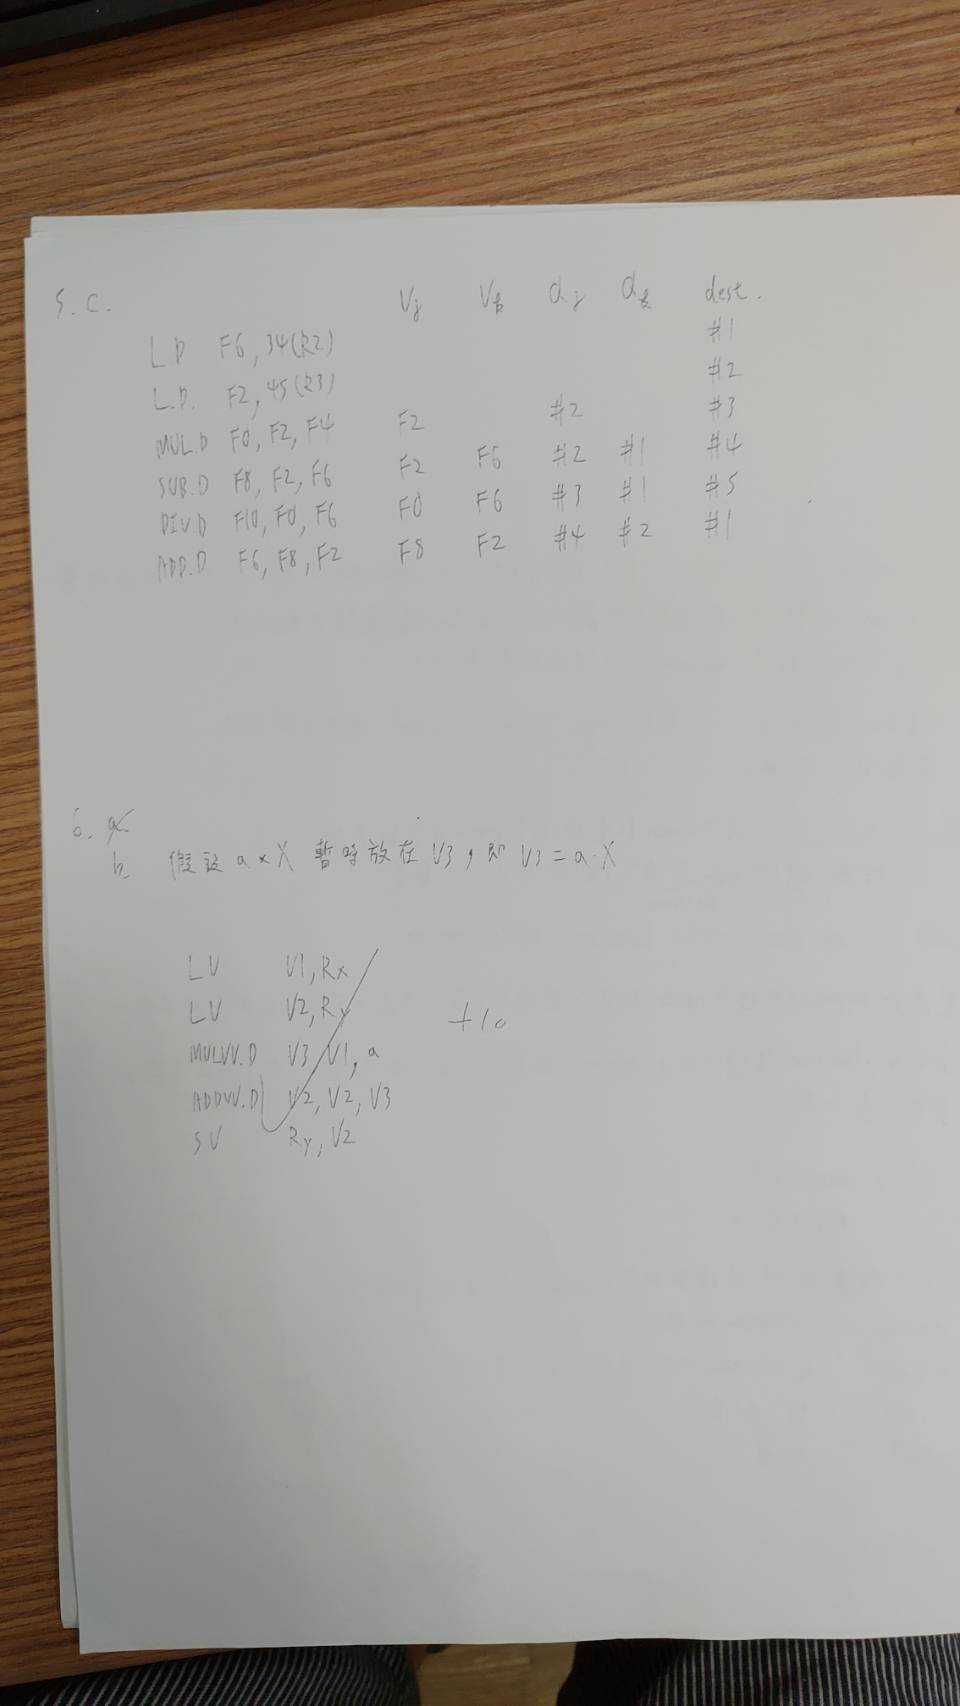 5. C. Vj Vk Qj Qk dest.
L.D F6, 34(R2) #1
L.D. F2, 45(R3) #2
MUL.D F0, F2, F4 F2 #2 #3
SUB.D F8, F2, F6 F2 F6 #2 #1 #4
DIV.D F10, F0, F6 F0 F6 #3 #1 #5
ADD.D F6, F8, F2 F8 F2 #4 #2 #1
6. a
b 假設 a×X 暫時放在 V3, 即 V3 = a·X
LV V1, Rx
LV V2, Ry
MULVV.D V3, V1, a
ADDVV.D V2, V2, V3
SV Ry, V2
+10